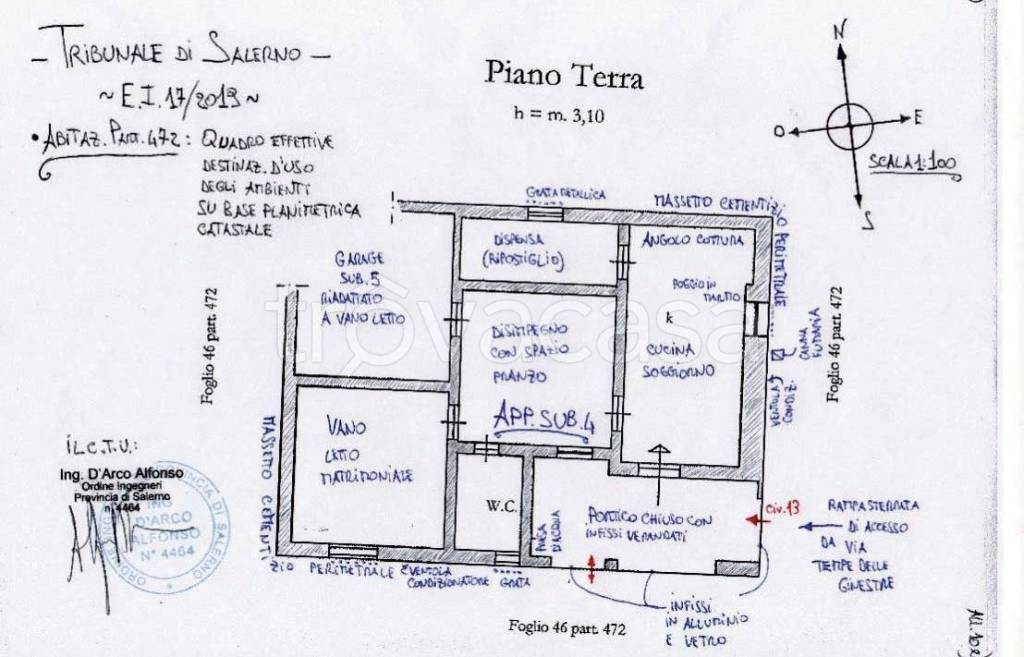 - TRIBUNALE DI SALERNO -
~ E.I. 17/2019 ~
• ABITAZ. PART. 472: QUADRO EFFETTIVE
DESTINAZ. D'USO
DEGLI AMBIENTI
SU BASE PLANIMETRICA
CATASTALE
Piano Terra
h = m. 3,10
N
O
E
S
SCALA 1:100
GRATA METALLICA
MASSETTO CEMENTIZIO PERIMETRALE
DISPENSA
(RIPOSTIGLIO)
ANGOLO COTTURA
GARAGE
SUB. 5
RIADATTATO
A VANO LETTO
POGGIO IN
k
CUCINA
SOGGIORNO
DISIMPEGNO
CON SPAZIO
PRANZO
APP. SUB. 4
trovacasa
Foglio 46 part. 472
Foglio 46 part. 472
CANNA
FUMARIA
VENTOLA
CONDIZ.
VANO
LETTO
MATRIMONIALE
W.C.
PRESA
D'ACQUA
PORTICO CHIUSO CON
INFISSI VERANDATI
civ. 13
RAMPA STERRATA
DI ACCESSO
DA VIA
TEMPE DELLE
GINESTRE
MASSETTO CEMENTIZIO PERIMETRALE
VENTOLA
CONDIZIONATORE
GRATA
INFISSI
IN ALLUMINIO
E VETRO
Foglio 46 part. 472
IL C.T.U.:
Ing. D'Arco Alfonso
Ordine Ingegneri
Provincia di Salerno
n. 4464
ING.
D'ARCO
ALFONSO
N° 4464